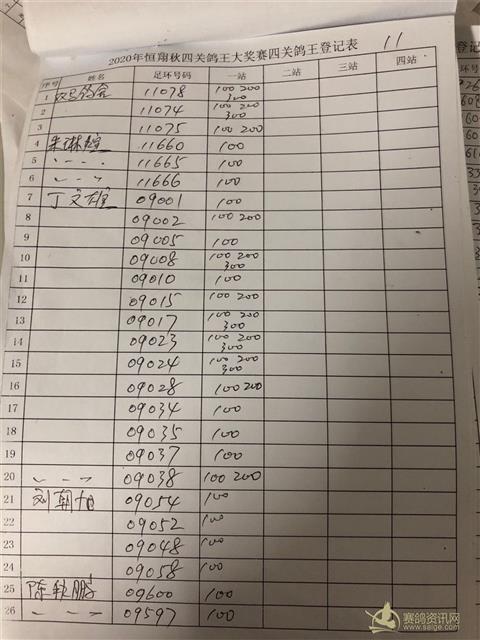 2020年恒翔秋四关鸽王大奖赛四关鸽王登记表 11
序号 姓名 足环号码 一站 二站 三站 四站
1 11078 100 200 300
2 11074 100 200 300
3 11075 100 200
4 朱琳煊 11660 100
5 〃 - - 〃 11665 100
6 〃 - - 〃 11666 100
7 丁文雄 09001 100
8 09002 100 200
9 09005 100
10 09008 100 200 300
11 09010 100
12 09015 100 200
13 09017 100 200 300
14 09023 100 200 300
15 09024 100 200 300
16 09028 100 200
17 09034 100
18 09035 100
19 09037 100
20 〃 - - 〃 09038 100 200
21 刘朝旭 09054 100
22 09052 100
23 09048 100
24 09058 100
25 陈钦鹏 09600 100
26 〃 - - 〃 09597 100
赛鸽资讯网
www.saige.com